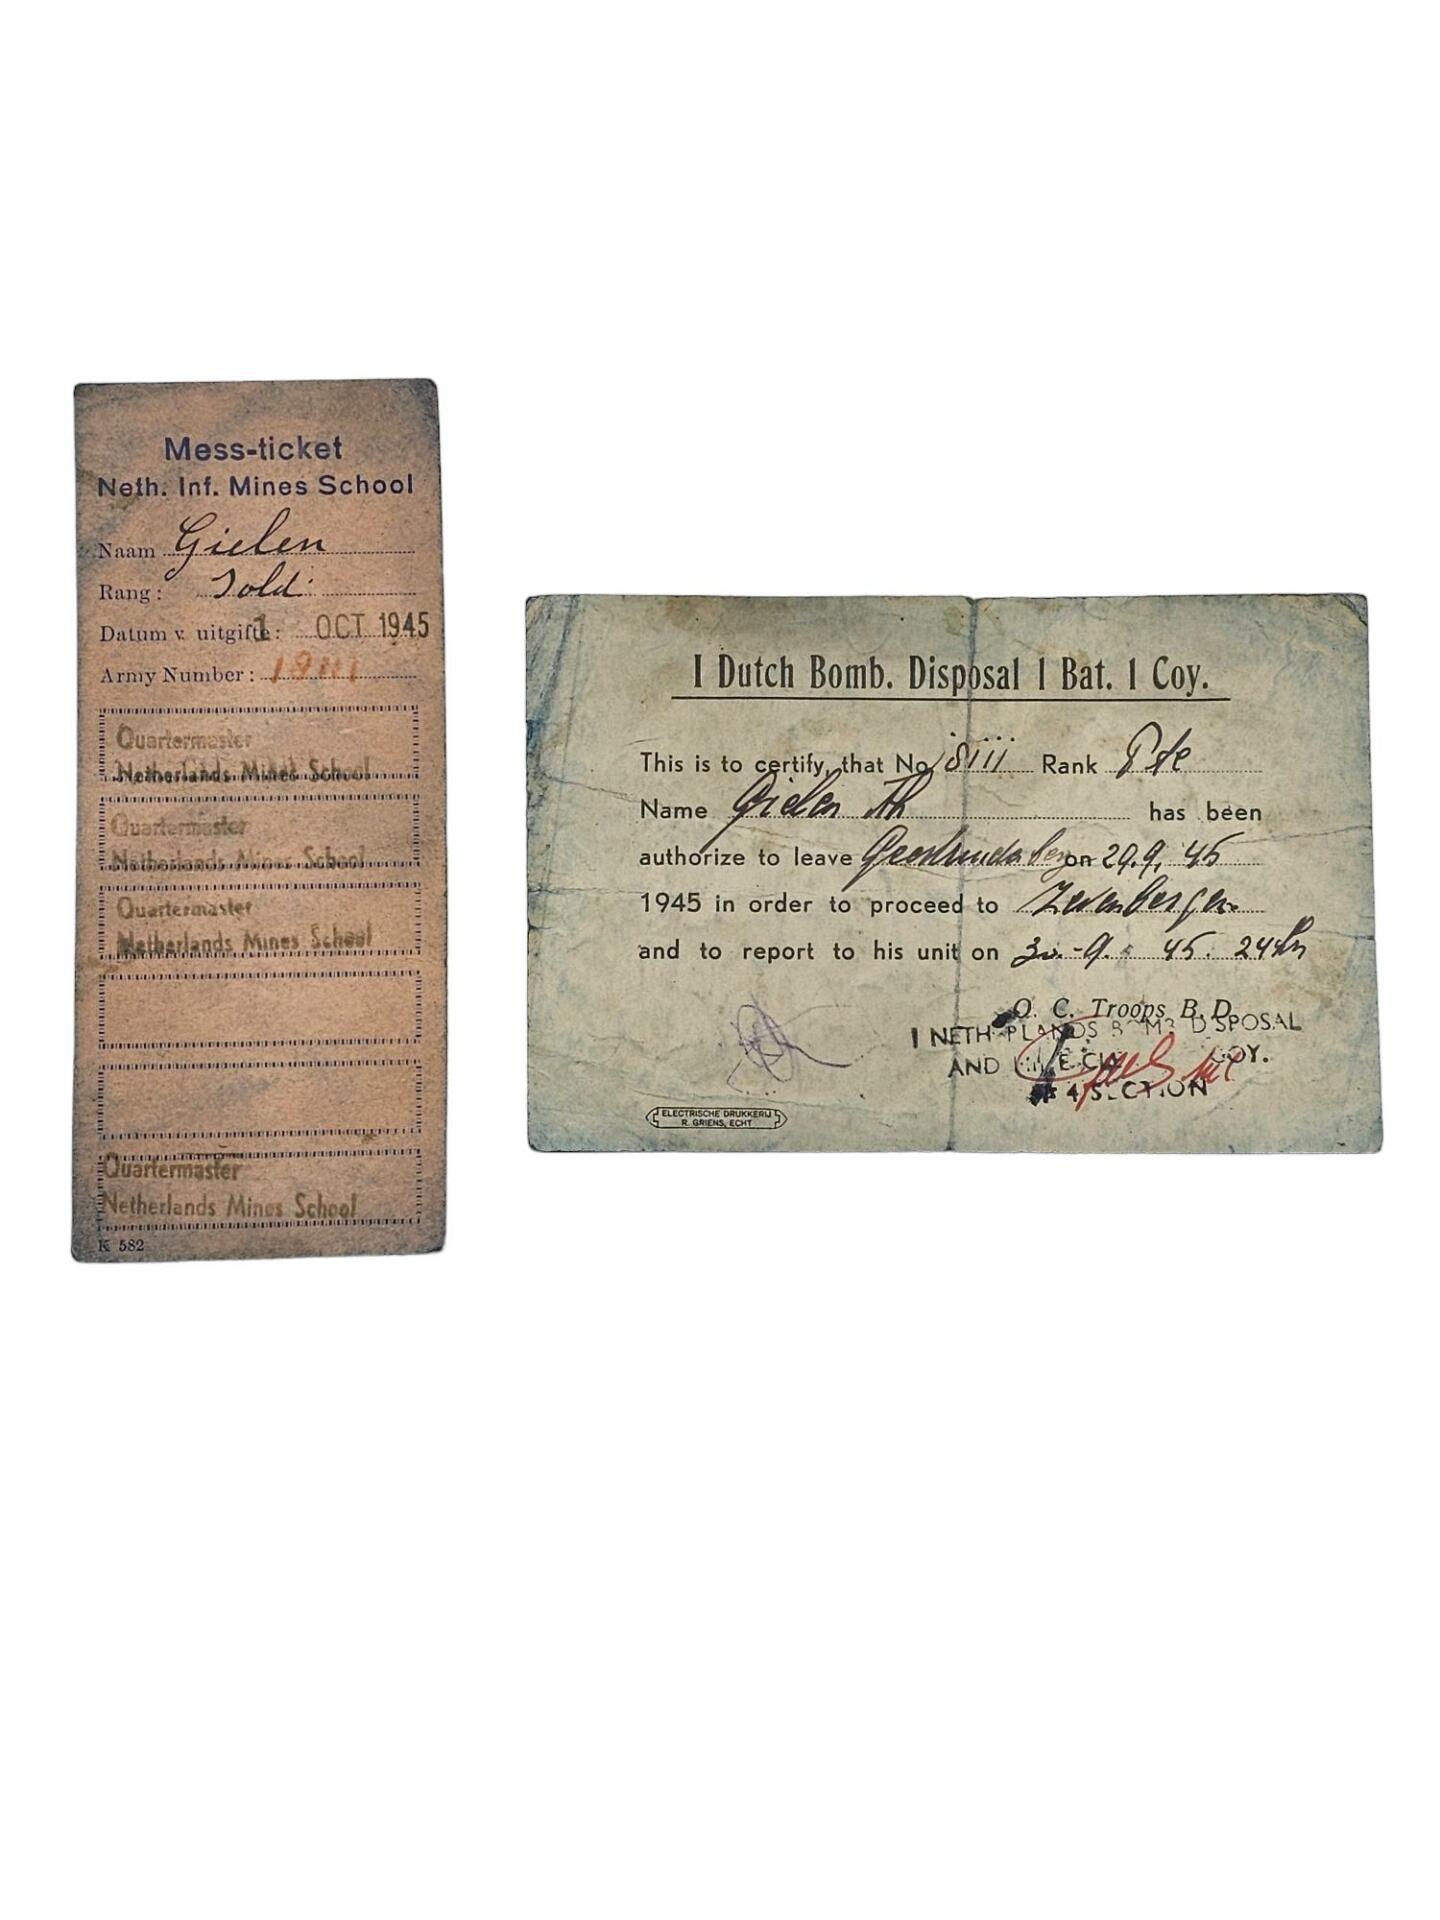 Mess-ticket
Neth. Inf. Mines School
Naam Gielen
Rang: Sold.
Datum v. uitgifte: 1 OCT 1945
Army Number:
Quartermaster
Netherlands Mines School
Quartermaster
Netherlands Mines School
Quartermaster
Netherlands Mines School
Quartermaster
Netherlands Mines School
K 582
I Dutch Bomb. Disposal 1 Bat. 1 Coy.
This is to certify, that No 18111 Rank Pte
Name Gielen Th has been
authorize to leave Geertruidaberg on 29.9.45
1945 in order to proceed to Zevenbergen
and to report to his unit on 30-9-45. 24 hrs
O. C. Troops B. D.
I NETHERLANDS BOMB DISPOSAL
AND COY.
4 SECTION
ELECTRISCHE DRUKKERIJ
R. GRIENS, ECHT